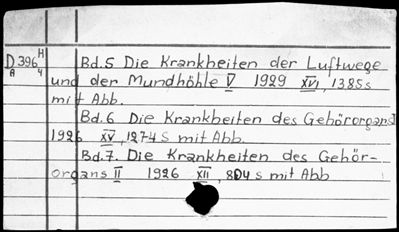 D 396 H Bd.5 Die Krankheiten der Luftwege
A 4 und der Mundhöhle V 1929 XVI, 1385s
mit Abb.
Bd.6 Die Krankheiten des Gehörorgans I
1926 XV, 1274 S mit Abb.
Bd.7. Die Krankheiten des Gehör-
organs II 1926 XII, 804 s mit Abb